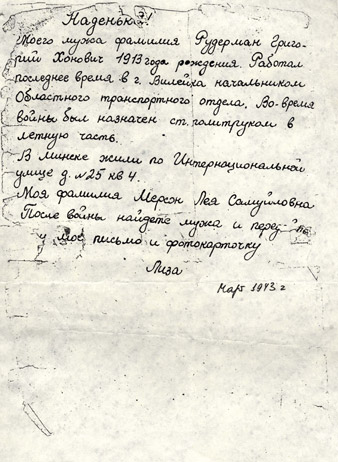 Наденька!
Моего мужа фамилия Рудерман Григо-
рий Хонович 1913 года рождения. Работал
последнее время в г. Вилейка начальником
Областного транспортного отдела. Во-время
войны был назначен ст. политруком в
летную часть.
В Минске жили по Интернациональной
улице д. №25 кв 4.
Моя фамилия Мерсон Лея Самуйловна
После войны найдете мужа и перед
мое письмо и фотокарточку
Лиза
Март 1943 г